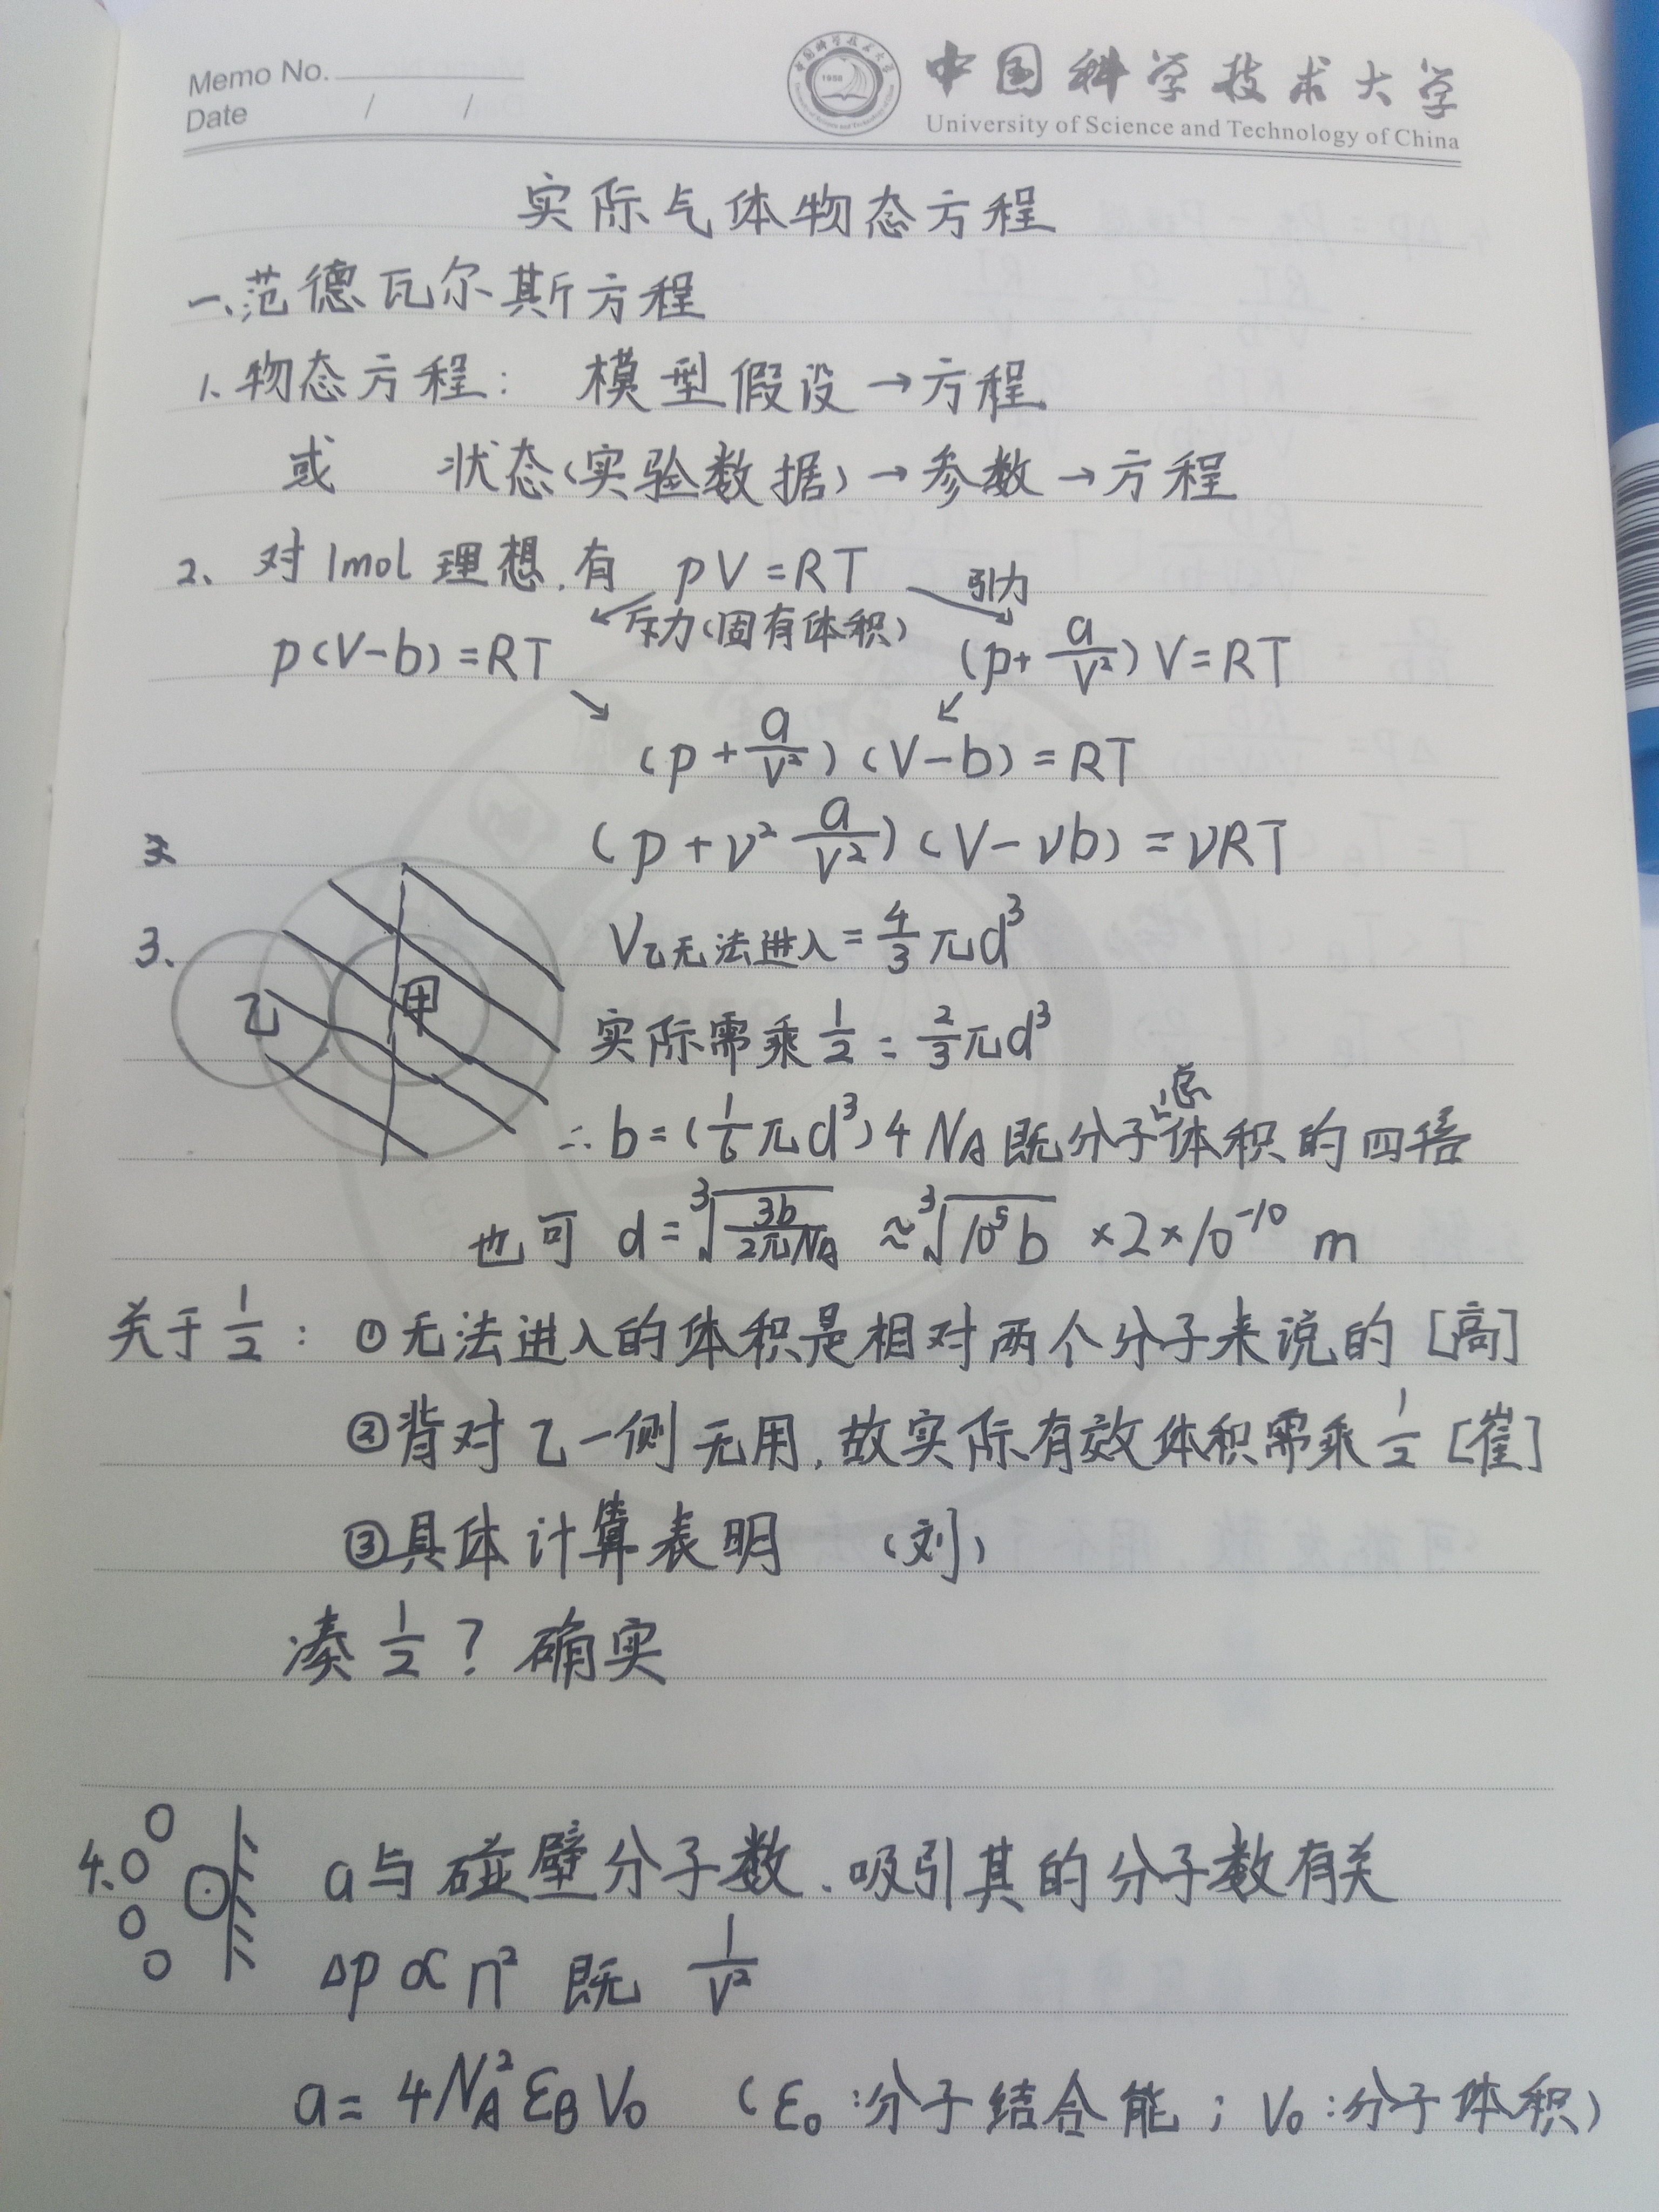 Memo No.
Date / /
中国科学技术大学
University of Science and Technology of China
实际气体物态方程
一、范德瓦尔斯方程
1、物态方程： 模型假设→方程
或 状态(实验数据)→参数→方程
2、对1mol理想，有 pV=RT 引力
斥力(固有体积)
p(V-b)=RT (p+a/V²)V=RT
(p+a/V²)(V-b)=RT
(p+ν²a/V²)(V-νb)=νRT
3、 乙 甲 V乙无法进入=4/3πd³
实际需乘1/2=2/3πd³
∴b=(1/6πd³)4NA既分子总体积的四倍
也可 d=³√(3b/2πNA) ≈³√(10⁵b) ×2×10⁻¹⁰ m
关于1/2：①无法进入的体积是相对两个分子来说的[高]
②背对乙一侧无用，故实际有效体积需乘1/2[崔]
③具体计算表明 (刘)
凑1/2？确实
4、 a与碰壁分子数、吸引其的分子数有关
Δp∝n² 既 1/V²
a=4NA²εBV₀ (ε₀:分子结合能；V₀:分子体积)